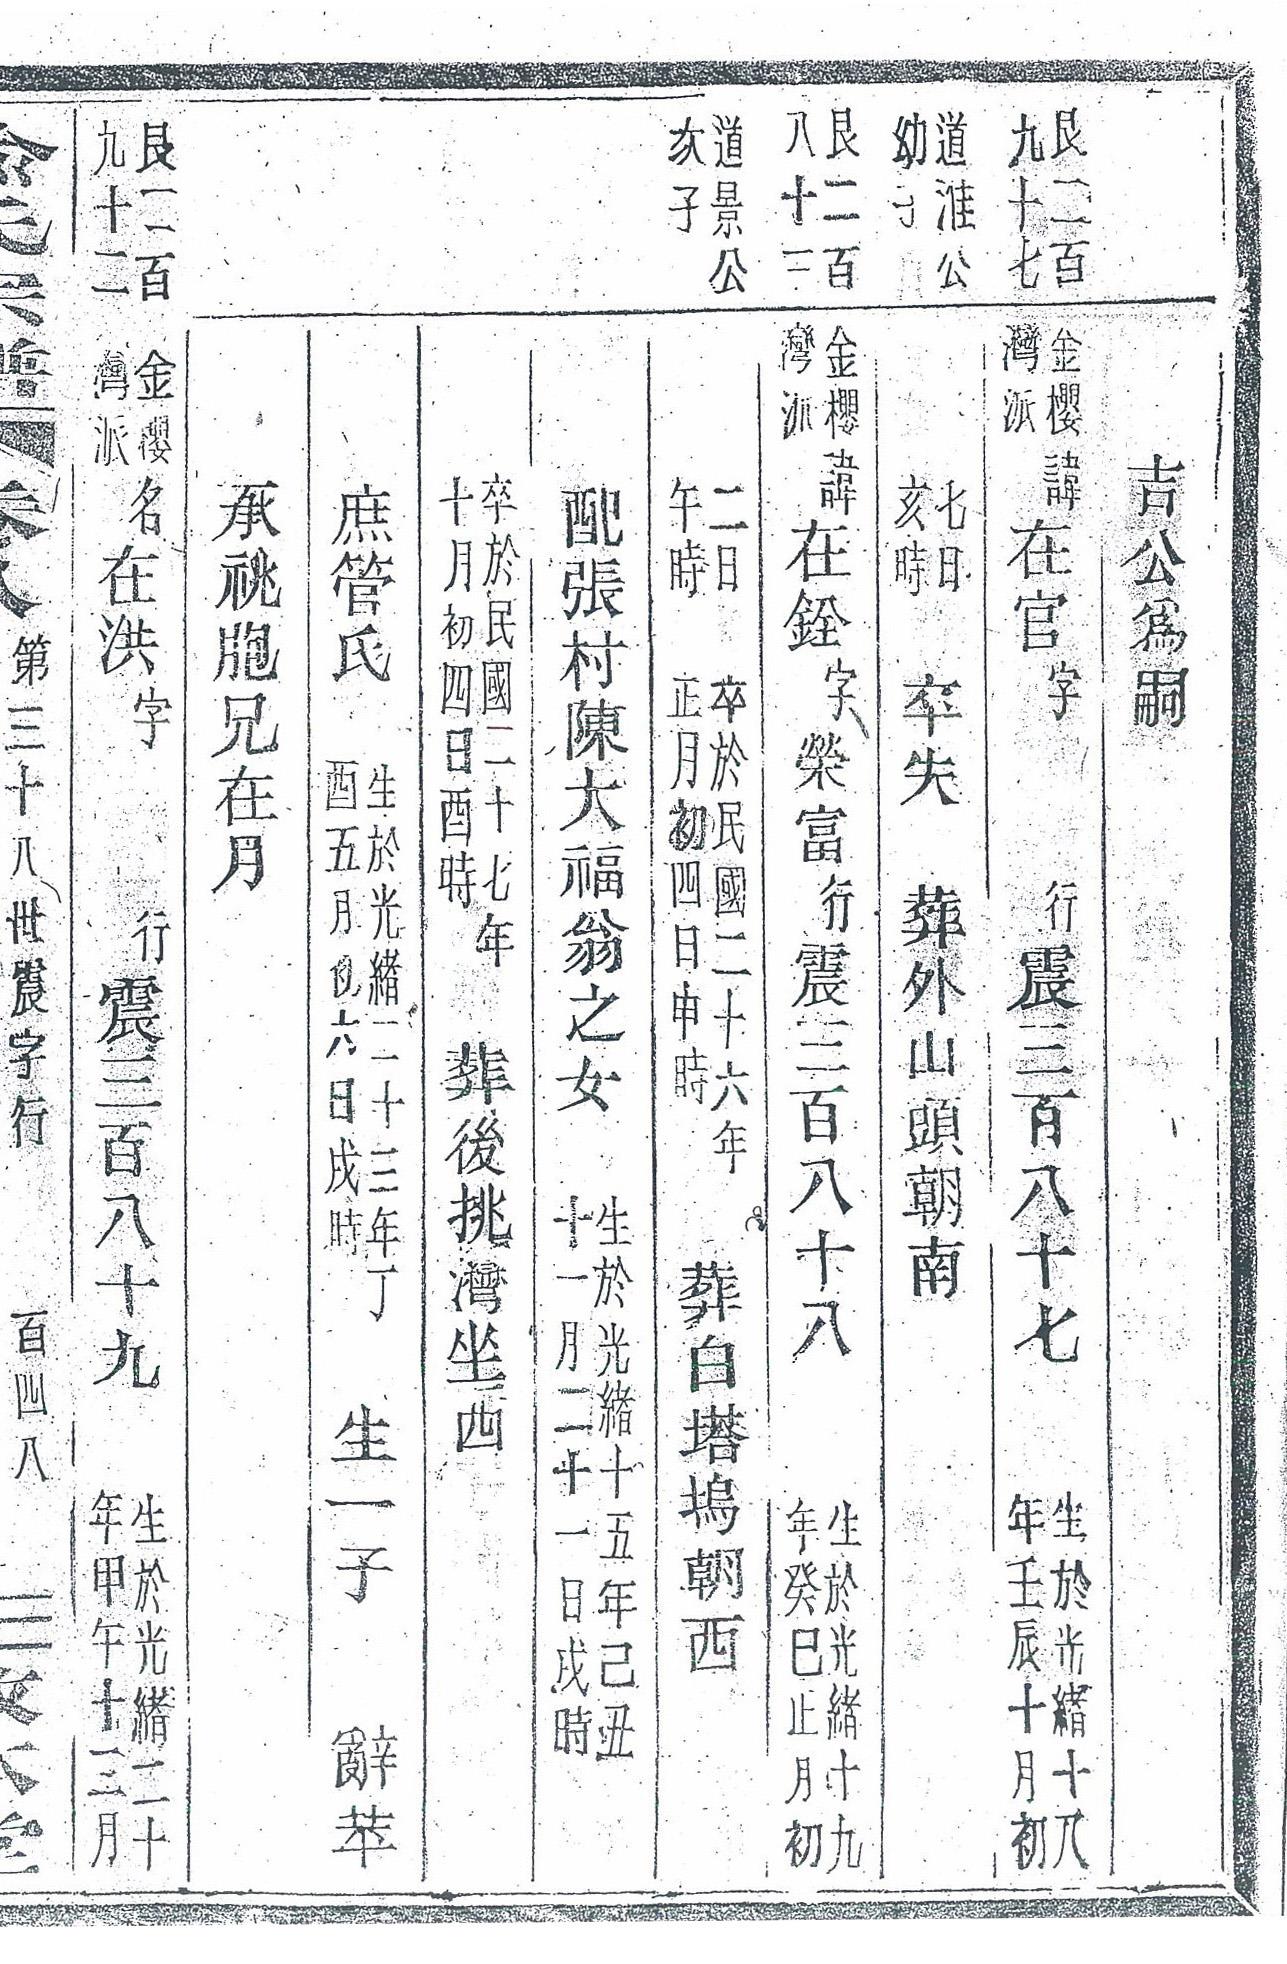 吉公爲嗣
艮二百九十七
金櫻灣派 諱在官 字 行震三百八十七 生於光緒十八年壬辰十月初
道淮公幼子
七日亥時 卒失 葬外山頭朝南
艮二百八十三
金櫻灣派 諱在銓 字榮富 行震三百八十八 生於光緒十九年癸巳正月初
道景公次子
二日午時 卒於民國二十六年正月初四日申時 葬白塔塢朝西
配張村陳大福翁之女 生於光緒十五年己丑十一月二十一日戌時
卒於民國二十七年十月初四日酉時 葬後挑灣坐西
庶管氏 生於光緒二十三年丁酉五月初六日戌時 生一子 辭莘
承祧胞兄在月
艮二百九十二
金櫻灣派 名在洪 字 行震三百八十九 生於光緒二十年甲午十二月
宗譜 卷八 第三十八世震字行 百四八